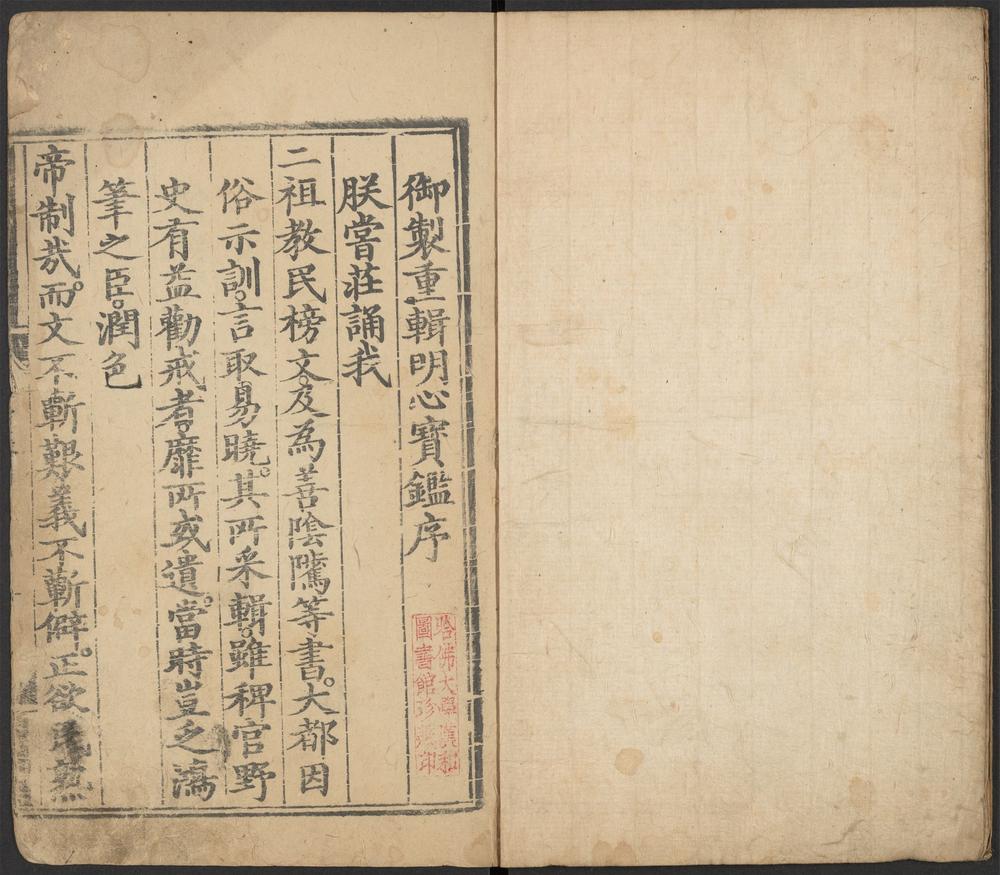 御製重輯明心寶鑑序
朕嘗莊誦我
二祖教民榜文。及為善陰隲等書。大都因
俗示訓。言取易曉。其所采輯。雖稗官野
史有益勸戒者。靡所或遺。當時豈乏鴻
筆之臣。潤色
帝制哉。而文不斬艱義不斬僻。正欲民
哈佛大學漢和
圖書館珍藏印